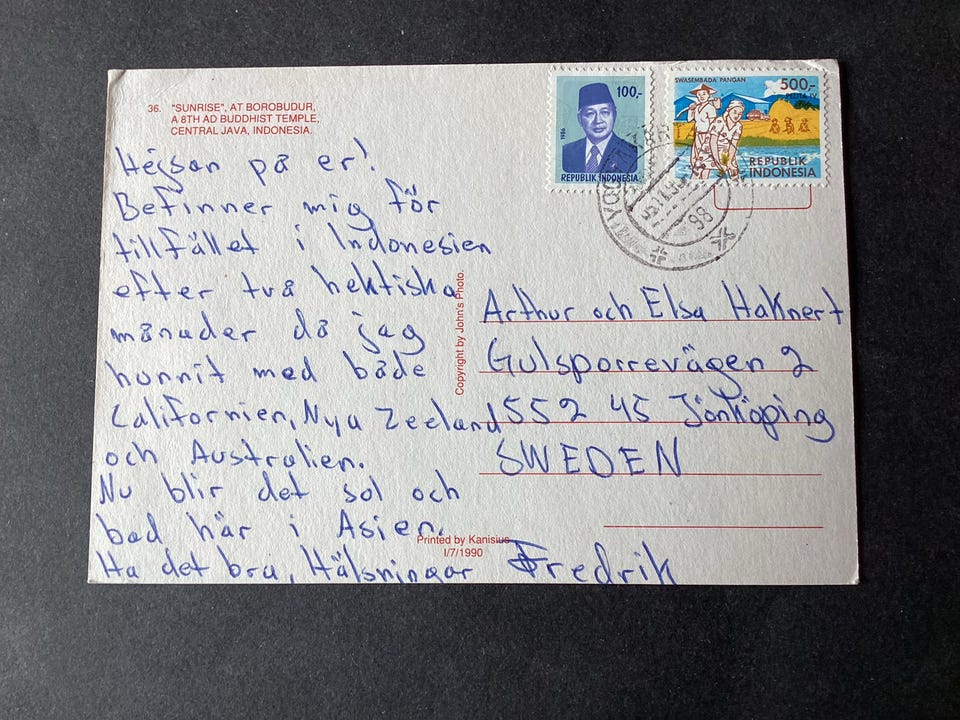 36. "SUNRISE", AT BOROBUDUR,
A 8TH AD BUDDHIST TEMPLE,
CENTRAL JAVA, INDONESIA.
Hejsan på er!
Befinner mig för
tillfället i Indonesien
efter två hektiska
månader då jag
hunnit med både
Californien, Nya Zeeland
och Australien.
Nu blir det sol och
bad här i Asien.
Ha det bra, Hälsningar Fredrik
Copyright by John's Photo.
Printed by Kanisius
I/7/1990
1986
100,-
REPUBLIK INDONESIA
SWASEMBADA PANGAN
500,-
PELITA IV
REPUBLIK
INDONESIA
Arthur och Elsa Haknert
Gulsporrevägen 2
552 45 Jönköping
SWEDEN